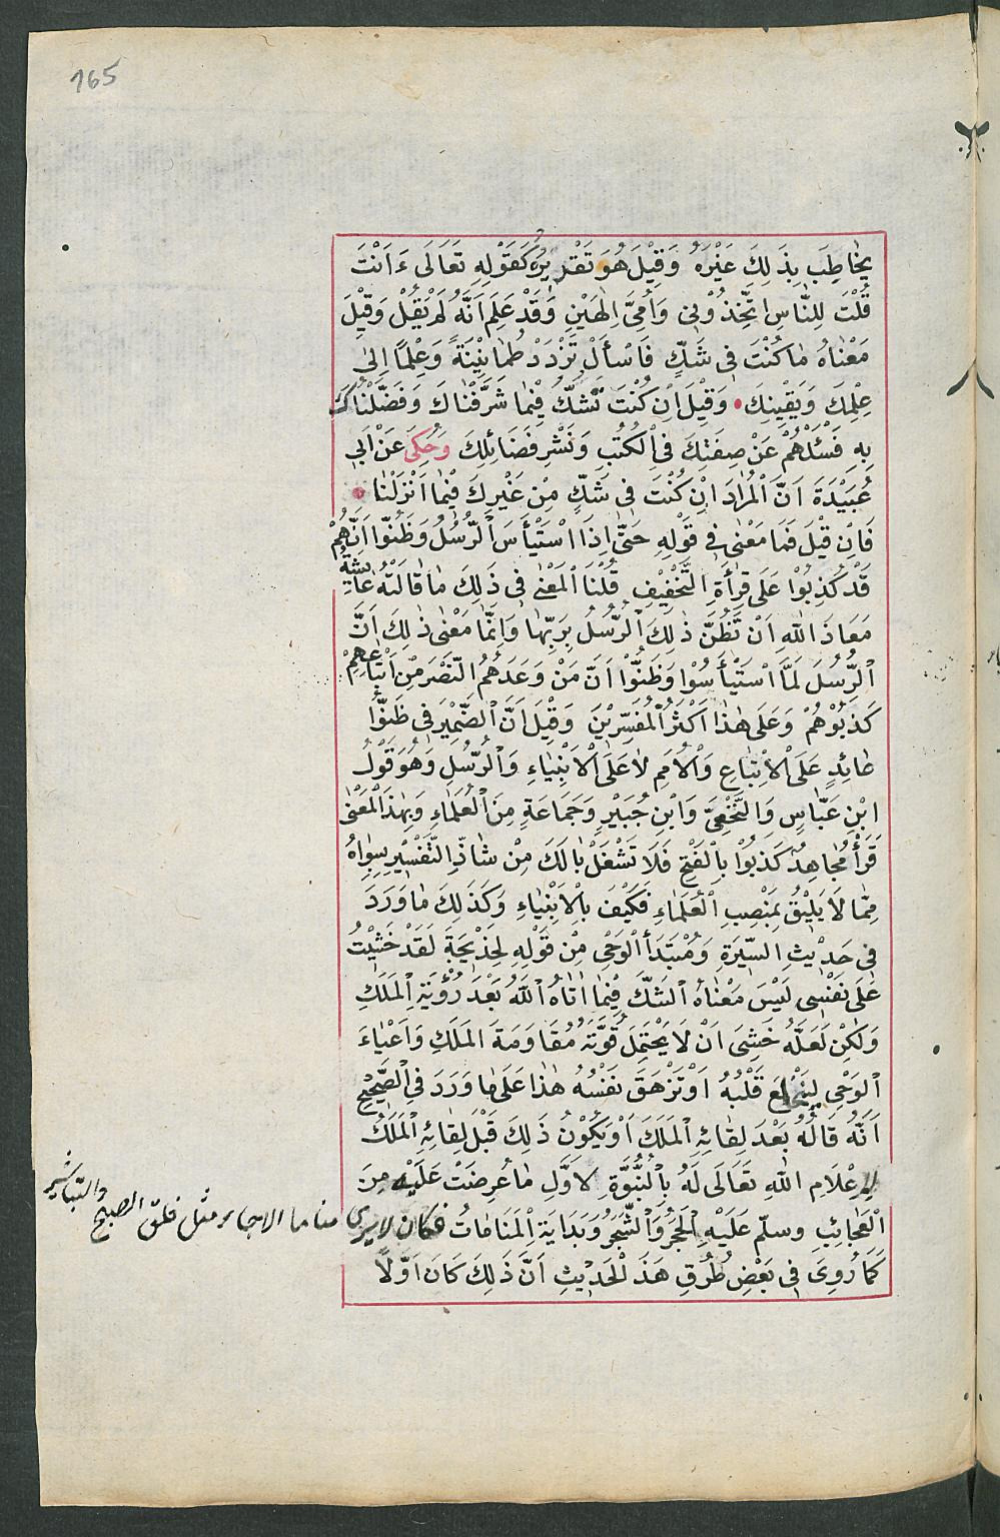 165
يُخَاطِبَ بِذَلِكَ غَيْرَهُ وَقِيْلَ هُوَ تَقْرِيْرٌ كَقَوْلِهِ تَعَالَى ءَاَنْتَ
قُلْتَ لِلنَّاسِ اتَّخِذُوْنِى وَاُمِّىَ اِلٰهَيْنِ وَقَدْ عَلِمَ اَنَّهُ لَمْ يَقُلْ وَقِيْلَ
مَعْنَاهُ مَا كُنْتَ فِى شَكٍّ فَاسْأَلْ تَزْدَدْ طُمَانِيْنَةً وَعِلْمًا اِلَى
عِلْمِكَ وَيَقِيْنِكَ وَقِيْلَ اِنْ كُنْتَ تَشُكُّ فِيْمَا شَرَّفْنَاكَ وَفَضَّلْنَاكَ
بِهِ فَسْئَلْهُمْ عَنْ صِفَتِكَ فِى الْكُتُبِ وَنَشْرِ فَضَائِلِكَ وَحُكِىَ عَنْ اَبِى
عُبَيْدَةَ اَنَّ الْمُرَادَ اِنْ كُنْتَ فِى شَكٍّ مِنْ غَيْرِكَ فِيْمَا اَنْزَلْنَا
فَاِنْ قِيْلَ فَمَا مَعْنٰى فِى قَوْلِهِ حَتَّى اِذَا اسْتَيْأَسَ الرُّسُلُ وَظَنُّوْا اَنَّهُمْ
قَدْ كُذِبُوْا عَلَى قِرَاءَةِ التَّخْفِيْفِ قُلْنَا الْمَعْنٰى فِى ذَلِكَ مَا قَالَتْهُ عَائِشَةُ
مَعَاذَ اللّٰهِ اَنْ تَظُنَّ ذٰلِكَ الرُّسُلُ بِرَبِّهَا وَاِنَّمَا مَعْنٰى ذٰلِكَ اَنَّ
الرُّسُلَ لَمَّا اسْتَيْأَسُوْا وَظَنُّوْا اَنَّ مَنْ وَعَدَهُمُ النَّصْرَ مِنْ اَتْبَاعِهِمْ
كَذَبُوْهُمْ وَعَلَى هٰذَا اَكْثَرُ الْمُفَسِّرِيْنَ وَقِيْلَ اَنَّ الضَّمِيْرَ فِى ظَنُّوْا
عَائِدٌ عَلَى الْاَتْبَاعِ وَالْاُمَمِ لَا عَلَى الْاَنْبِيَاءِ وَالرُّسُلِ وَهُوَ قَوْلُ
ابْنِ عَبَّاسٍ وَالنَّخْعِىِّ وَابْنِ جُبَيْرٍ وَجَمَاعَةٍ مِنَ الْعُلَمَاءِ وَبِهٰذَا الْمَعْنٰى
قَرَأَ مُجَاهِدٌ كَذَبُوْا بِالْفَتْحِ فَلَا تَشْغَلْ بَالَكَ مِنْ شَاذِّ التَّفْسِيْرِ بِسِوَاهُ
مِمَّا لَا يَلِيْقُ بِمَنْصِبِ الْعُلَمَاءِ فَكَيْفَ بِالْاَنْبِيَاءِ وَكَذَلِكَ مَا وَرَدَ
فِى حَدِيْثِ السِّيْرَةِ وَمُبْتَدَأِ الْوَحْىِ مِنْ قَوْلِهِ لِخَدِيْجَةَ لَقَدْ خَشِيْتُ
عَلَى نَفْسِى لَيْسَ مَعْنَاهُ الشَّكَّ فِيْمَا اٰتَاهُ اللّٰهُ بَعْدَ رُؤْيَةِ الْمَلَكِ
وَلٰكِنْ لَعَلَّهُ خَشِىَ اَنْ لَا يَحْتَمِلَ قُوَّتُهُ مُقَاوَمَةَ الْمَلَكِ وَاَعْبَاءَ
الْوَحْىِ لِيَنْخَلِعَ قَلْبُهُ اَوْ تَزْهَقَ نَفْسُهُ هٰذَا عَلَى مَا وَرَدَ فِى الصَّحِيْحِ
اَنَّهُ قَالَهُ بَعْدَ لِقَائِهِ الْمَلَكَ اَوْ يَكُوْنُ ذَلِكَ قَبْلَ لِقَائِهِ الْمَلَكَ
لِاِعْلَامِ اللّٰهِ تَعَالَى لَهُ بِالنُّبُوَّةِ لِاَوَّلِ مَا عُرِضَتْ عَلَيْهِ مِنَ
الْعَجَائِبِ وسلّم عَلَيْهِ الْحَجَرُ وَالشَّجَرُ وَبَدَايَةِ الْمَنَامَاتُ فكان لا يرى مناما الا جاء مثل فلق الصبح والتباشير
كَمَا رُوِىَ فِى بَعْضِ طُرُقِ هَذَ الْحَدِيْثِ اَنَّ ذَلِكَ كَانَ اَوَّلًا